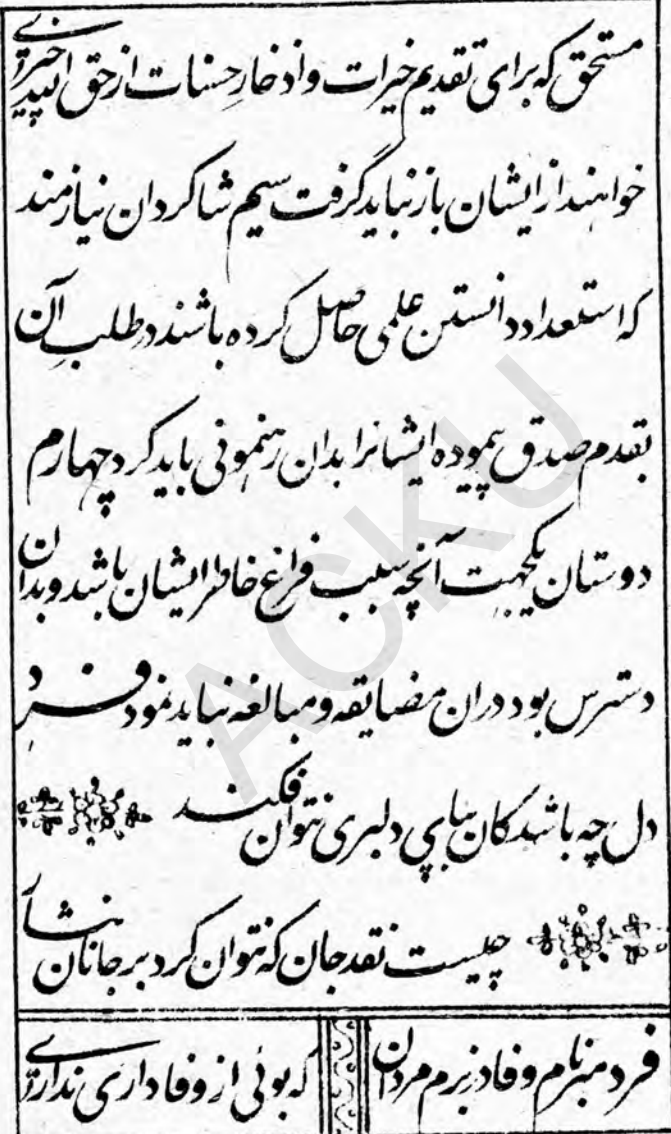 مستحق که برای تقدیم خیرات و ادخار حسنات از حق ایشان چیزی
خواهند از ایشان باز نباید گرفت سیم شاکردان نیازمند
که استعداد دانستن علمی حاصل کرده باشند در طلب آن
بقدم صدق پیموده ایشانرا بدان رهنمونی باید کرد چهارم
دوستان یکجهت آنچه سبب فراغ خاطر ایشان باشد و بدان
دسترس بود دران مضایقه و مبالغه نباید نمود فرد
دل چه باشد کان بپای دلبری نتوان فکند
چیست نقد جان که نتوان کرد بر جانان نثار
فرد مبر نام وفا در بزم مردان که بوئی از وفاداری ندارد
ACKU